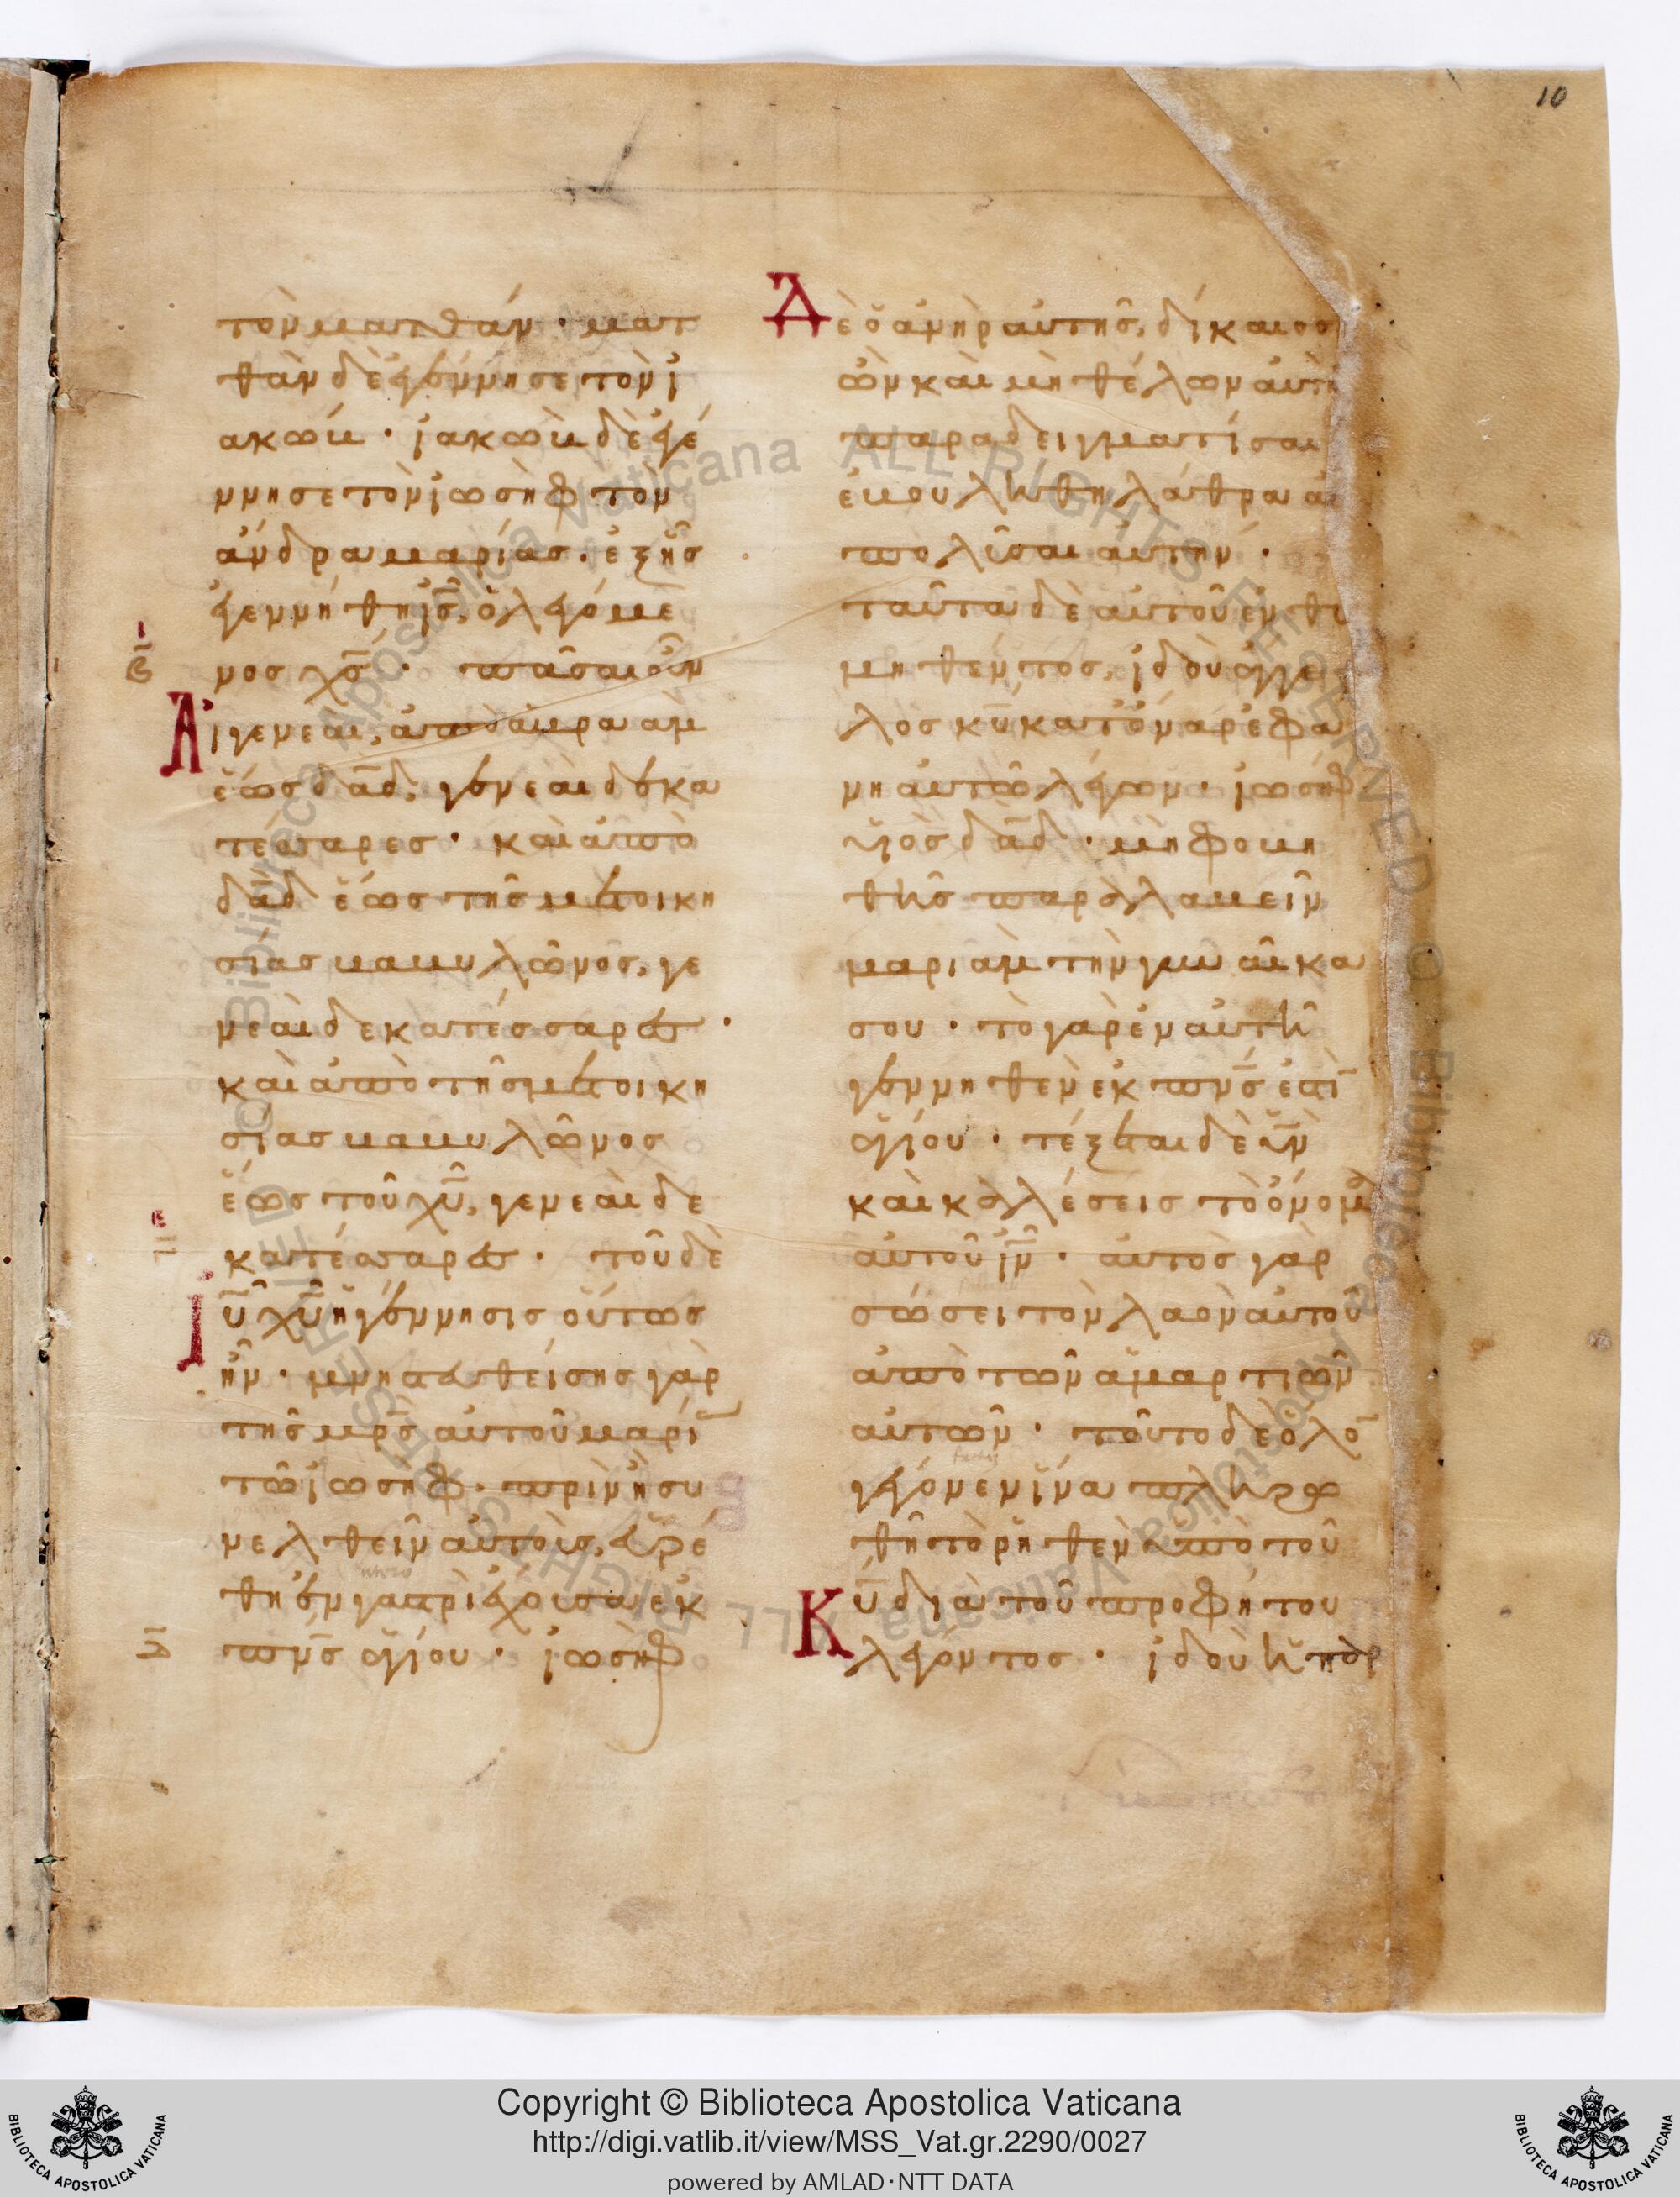 10
τὸν ματθάν · ματ
θὰν δὲ ἐγέννησε τὸν ἰ
ακώβ · ἰακὼβ δὲ ἐγέ
ννησε τὸν ἰωσὴφ τὸν
ἄνδρα μαρίας · ἐξ ἧς
ἐγεννήθη ἰς̄, ὁ λεγόμε
νος χς̄ · πᾶσαι οὖν
Αἱ γενεαι, ἀπὸ ἀβρααμ
ἕως δᾱδ, γενεαὶ δεκα
τέσσαρες · καὶ ἀπὸ
δᾱδ ἕως τῆς μετοικη
σίας βαβυλῶνος, γε
νεαὶ δεκατέσσαρες ·
καὶ ἀπὸ τῆς μετοικη
σίας βαβυλῶνος
ἕως τοῦ χῡ, γενεαὶ δε
κατέσσαρες · τοῦ δὲ
Ιῡ χῡ ἡ γέννησις οὕτως
ἦν · μνηστευθείσης γὰρ
τῆς μρ̄ς αὐτοῦ μαρί
τῶ ἰωσὴφ · πρὶν ἢ συ
νελθεῖν αὐτοὺς, εὑρέ
θη ἐν γαστρὶ ἔχουσα ἐκ
πν̄ς ἁγίου · ἰωσὴφ
Δὲ ὁ ἀνὴρ αὐτῆς, δίκαιος
ὢν καὶ μὴ θέλων αὐτὴ
παραδειγματίσαι
ἐβουλήθη λάθρα ἀ
πολῦσαι αὐτήν ·
ταῦτα δὲ αὐτοῦ ἐνθυ
μηθέντος, ἰδοὺ ἄγγε
λος κῡ κατ' ὄναρ ἐφα
νη αὐτῶ λέγων · ἰωσὴφ
υἱὸς δᾱδ · μὴ φοβη
θῆς παραλαβεῖν
μαριὰμ τὴν γυναῖκα
σου · τὸ γὰρ ἐν αὐτῆ
γεννηθὲν ἐκ πν̄ς ἐστὶ
ἁγίου · τέξεται δὲ ῡν
καὶ καλέσεις τὸ ὄνομα
αὐτοῦ ἰν̄ · αὐτὸς γὰρ
σώσει τὸν λαὸν αὐτοῦ
ἀπὸ τῶν ἁμαρτιῶν
αὐτῶν · τοῦτο δὲ ὅλο
γέγονεν ἵνα πληρω
θῆ τὸ ῥηθὲν ὑπὸ τοῦ
Κῡ διὰ τοῦ προφήτου
λέγοντος · ἰδοὺ ἡ παρ
Copyright © Biblioteca Apostolica Vaticana
http://digi.vatlib.it/view/MSS_Vat.gr.2290/0027
powered by AMLAD·NTT DATA
BIBLIOTECA APOSTOLICA VATICANA
BIBLIOTECA APOSTOLICA VATICANA